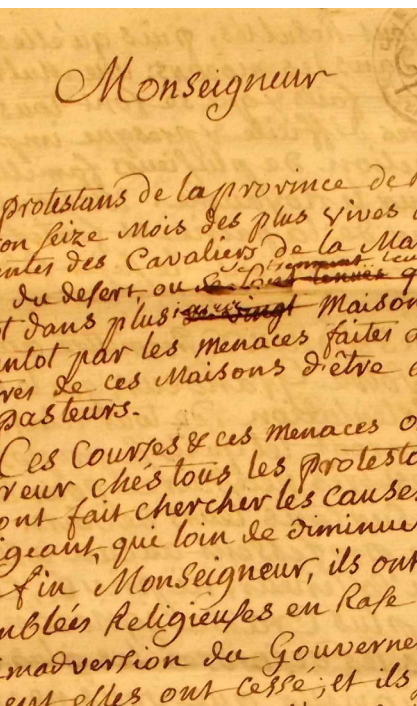 Monseigneur
protestans de la province de
on seize Mois des plus vives
des Cavaliers de la Ma
du desert, ou
t dans plus vingt Maison
antot par les menaces faites
res de ces Maisons d'être
pasteurs.
Ces Courses & ces menaces o
reur chés tous les protesta
ont fait chercher les causes
igeant, que loin de diminue
fin Monseigneur, ils ont
mblées Religieuses en Rase
imadversion du Gouverne
ent elles ont cessé; et ils